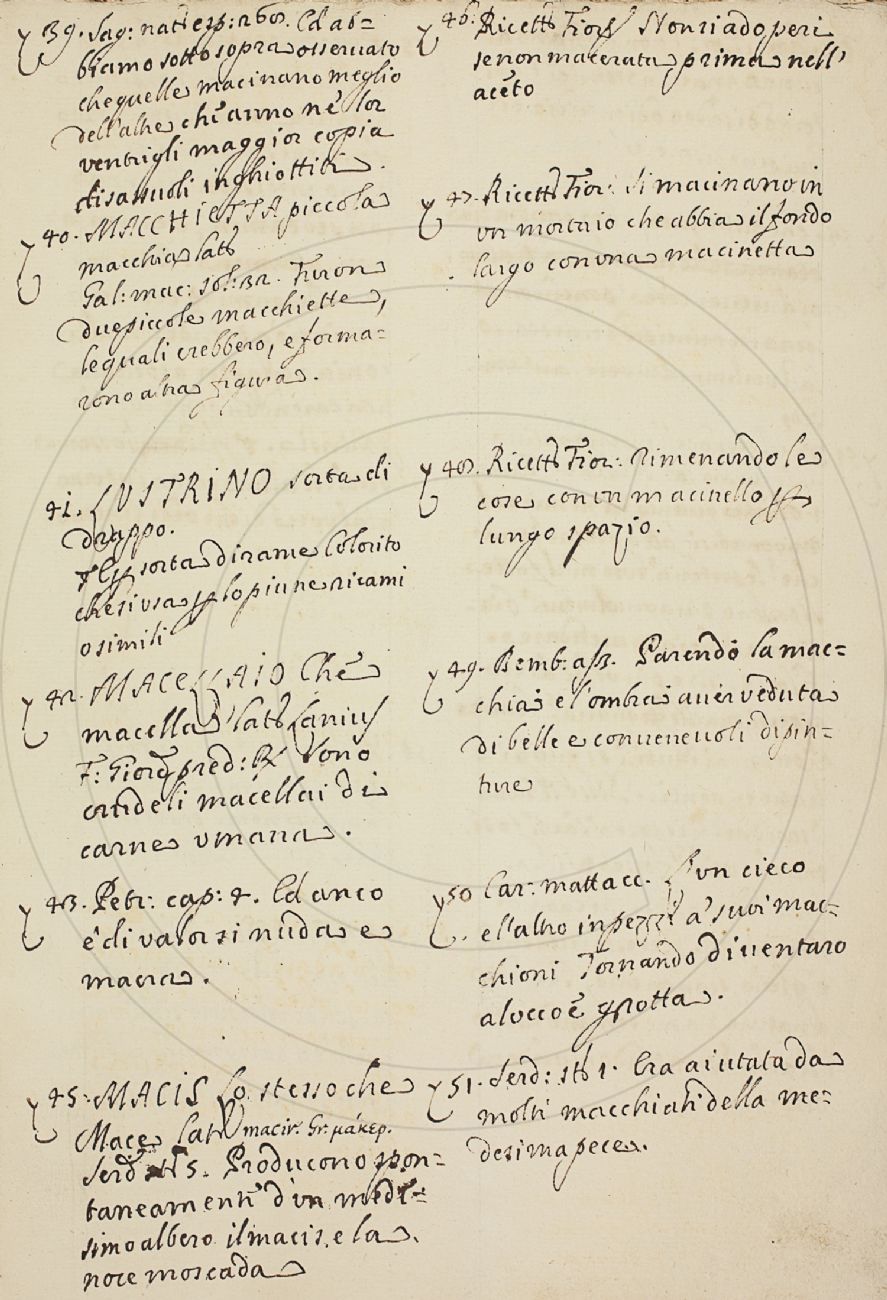 39. Sag: nat: esp: 260. Ed ab-
biamo sotto sopra osservato
che quelle macinano meglio
dell'altre che anno ne lor
ventrigli maggior copia
di sassuoli inghiottiti.
40. MACCHIETTA piccola
macchia lat:
Gal: mac: sol: 32. Furon
due piccole macchiette,
le quali crebbero, e forma-
rono altra figura.
41. LUSTRINO sorta di
drappo.
sorta di rame colorito
che si usa per lo più ne ricami
o simili
42. MACELLAIO Che
macella lat: Lanius
F: Giord: pred: R Sono
crudeli macellai di
carne umana.
43. Petr: cap: 4. Ed anco
è di valor sì nuda e
macra.
45. MACIS Lo stesso che
Mace lat: macir. Gr: μάκερ.
Serd: st: 5. Producono spon-
taneamente d'un mede-
simo albero il macis, e la
noce moscada
46. Ricett: Fior: Non si adoperi
se non macerata prima nell'
aceto
47. Ricett: Fior: Si macinano in
un mortaio che abbia il fondo
largo con una macinetta
48. Ricett: Fior: Rimenando le
cose con un macinello per
lungo spazio.
49. Bemb: as: 3. Parendo la mac-
chia e l'ombra aver veduta
di belle e convenevoli dipin-
ture
50 Car: mattacc. L'un cieco
e l'altro in pezzi a' suoi mac-
chioni Tornando diventaro
alocco e grotta.
51. Serd: st: 1. Era aiutata da
molti macchiati della me-
desima pece.